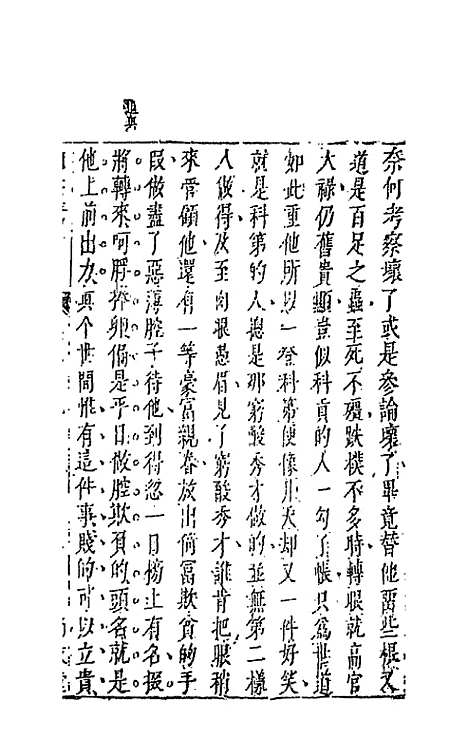 奈何考察壞了或是參論壞了畢竟替他留些根又
道是百足之蟲至死不殭跌樸不多時轉眼就高官
大祿仍舊貴顯豈似科貢的人一勾了帳只爲世道
如此重他所以一登科第便像升天却又一件好笑
就是科第的人總是那窮酸秀才做的並無第二樣
人做得及至肉眼愚眉見了窮酸秀才誰肯把眼稍
來管顧他還有一等豪富親眷放出倚富欺貧的手
段做盡了惡薄腔子待他到得忽一日榜上有名掇
將轉來呵脬捧卵偏是平日做腔欺負的頭名就是
他上前出力真个世間惟有這件事賤的可以立貴